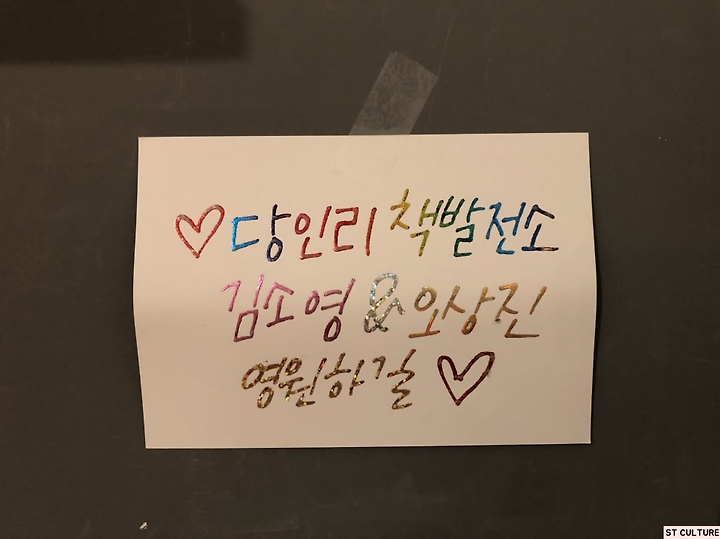 ♡당인리 책발전소
김소영 & 오상진
영원하길 ♡
ST CULTURE